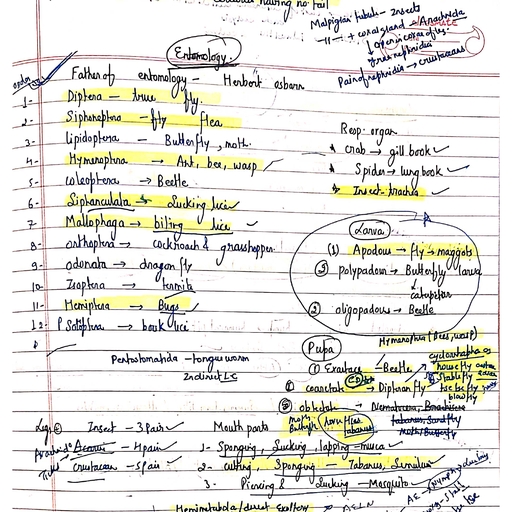 having no tail
Malpigian tubul - Insects
" + coxal gland - Arachnida
green nephridia
Pair of nephridia → crustacean
Entomology
Father of entomology - Herbert osborn
1- Diptera - true fly.
2- Siphonoptera - fly flea
3- Lipidoptera - Butterfly, moth.
4- Hymenoptera → Ant, bee, wasp
5- coleoptera → Beetle
6- Siphanculata → Sucking lice
7- Mallophaga → biting lice
8- orthoptera → cockroach & grasshopper.
9- odonata → dragon fly
10- Isoptera → termite
11- Hemiptera → Bugs
12- PSotoptera → book lice
Resp. organ
* crab → gill book
* Spider → lung book
* Insect - trachea
Larva
(1) Apodous → fly → maggots
(3) polypadous → Butterfly larva
↓
caterpillar
(2) oligopadous → Beetle
Pentastomatida - tongue worm
2nd inst LC
Pupa
Hymenoptera (Bees, wasp)
(1) Exarate - Beetle
cyclorrhapha
house fly
stable fly
tse tse fly
blow fly
coarctate → Dipteran fly
(3) obtectate
Legs Insect - 3 pair
Acarine - 4 pair
crustacean - 5 pair
Mouth parts
1- Sponging, Sucking, lapping - musca
2- cutting, Sponging - Tabanus, Simulium
3- Piercing & Sucking - Mosquito